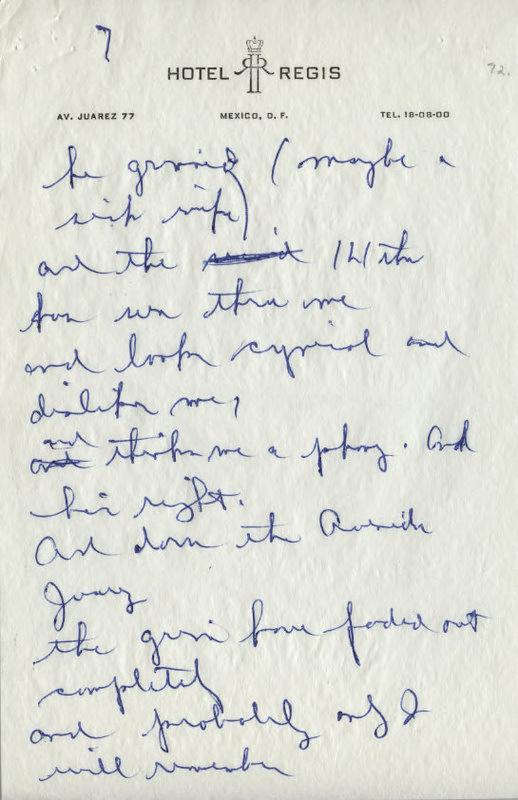 7
HOTEL REGIS
92.
AV. JUAREZ 77 MEXICO, D. F. TEL. 18-08-00
he grinned (maybe a
sick wife)
and the 14th
has seen thru me
and looks cynical and
dislikes me,
and thinks me a phony. And
he's right.
And down the Avenida
Juarez
the grins have faded out
completely
and probably only I
will remember